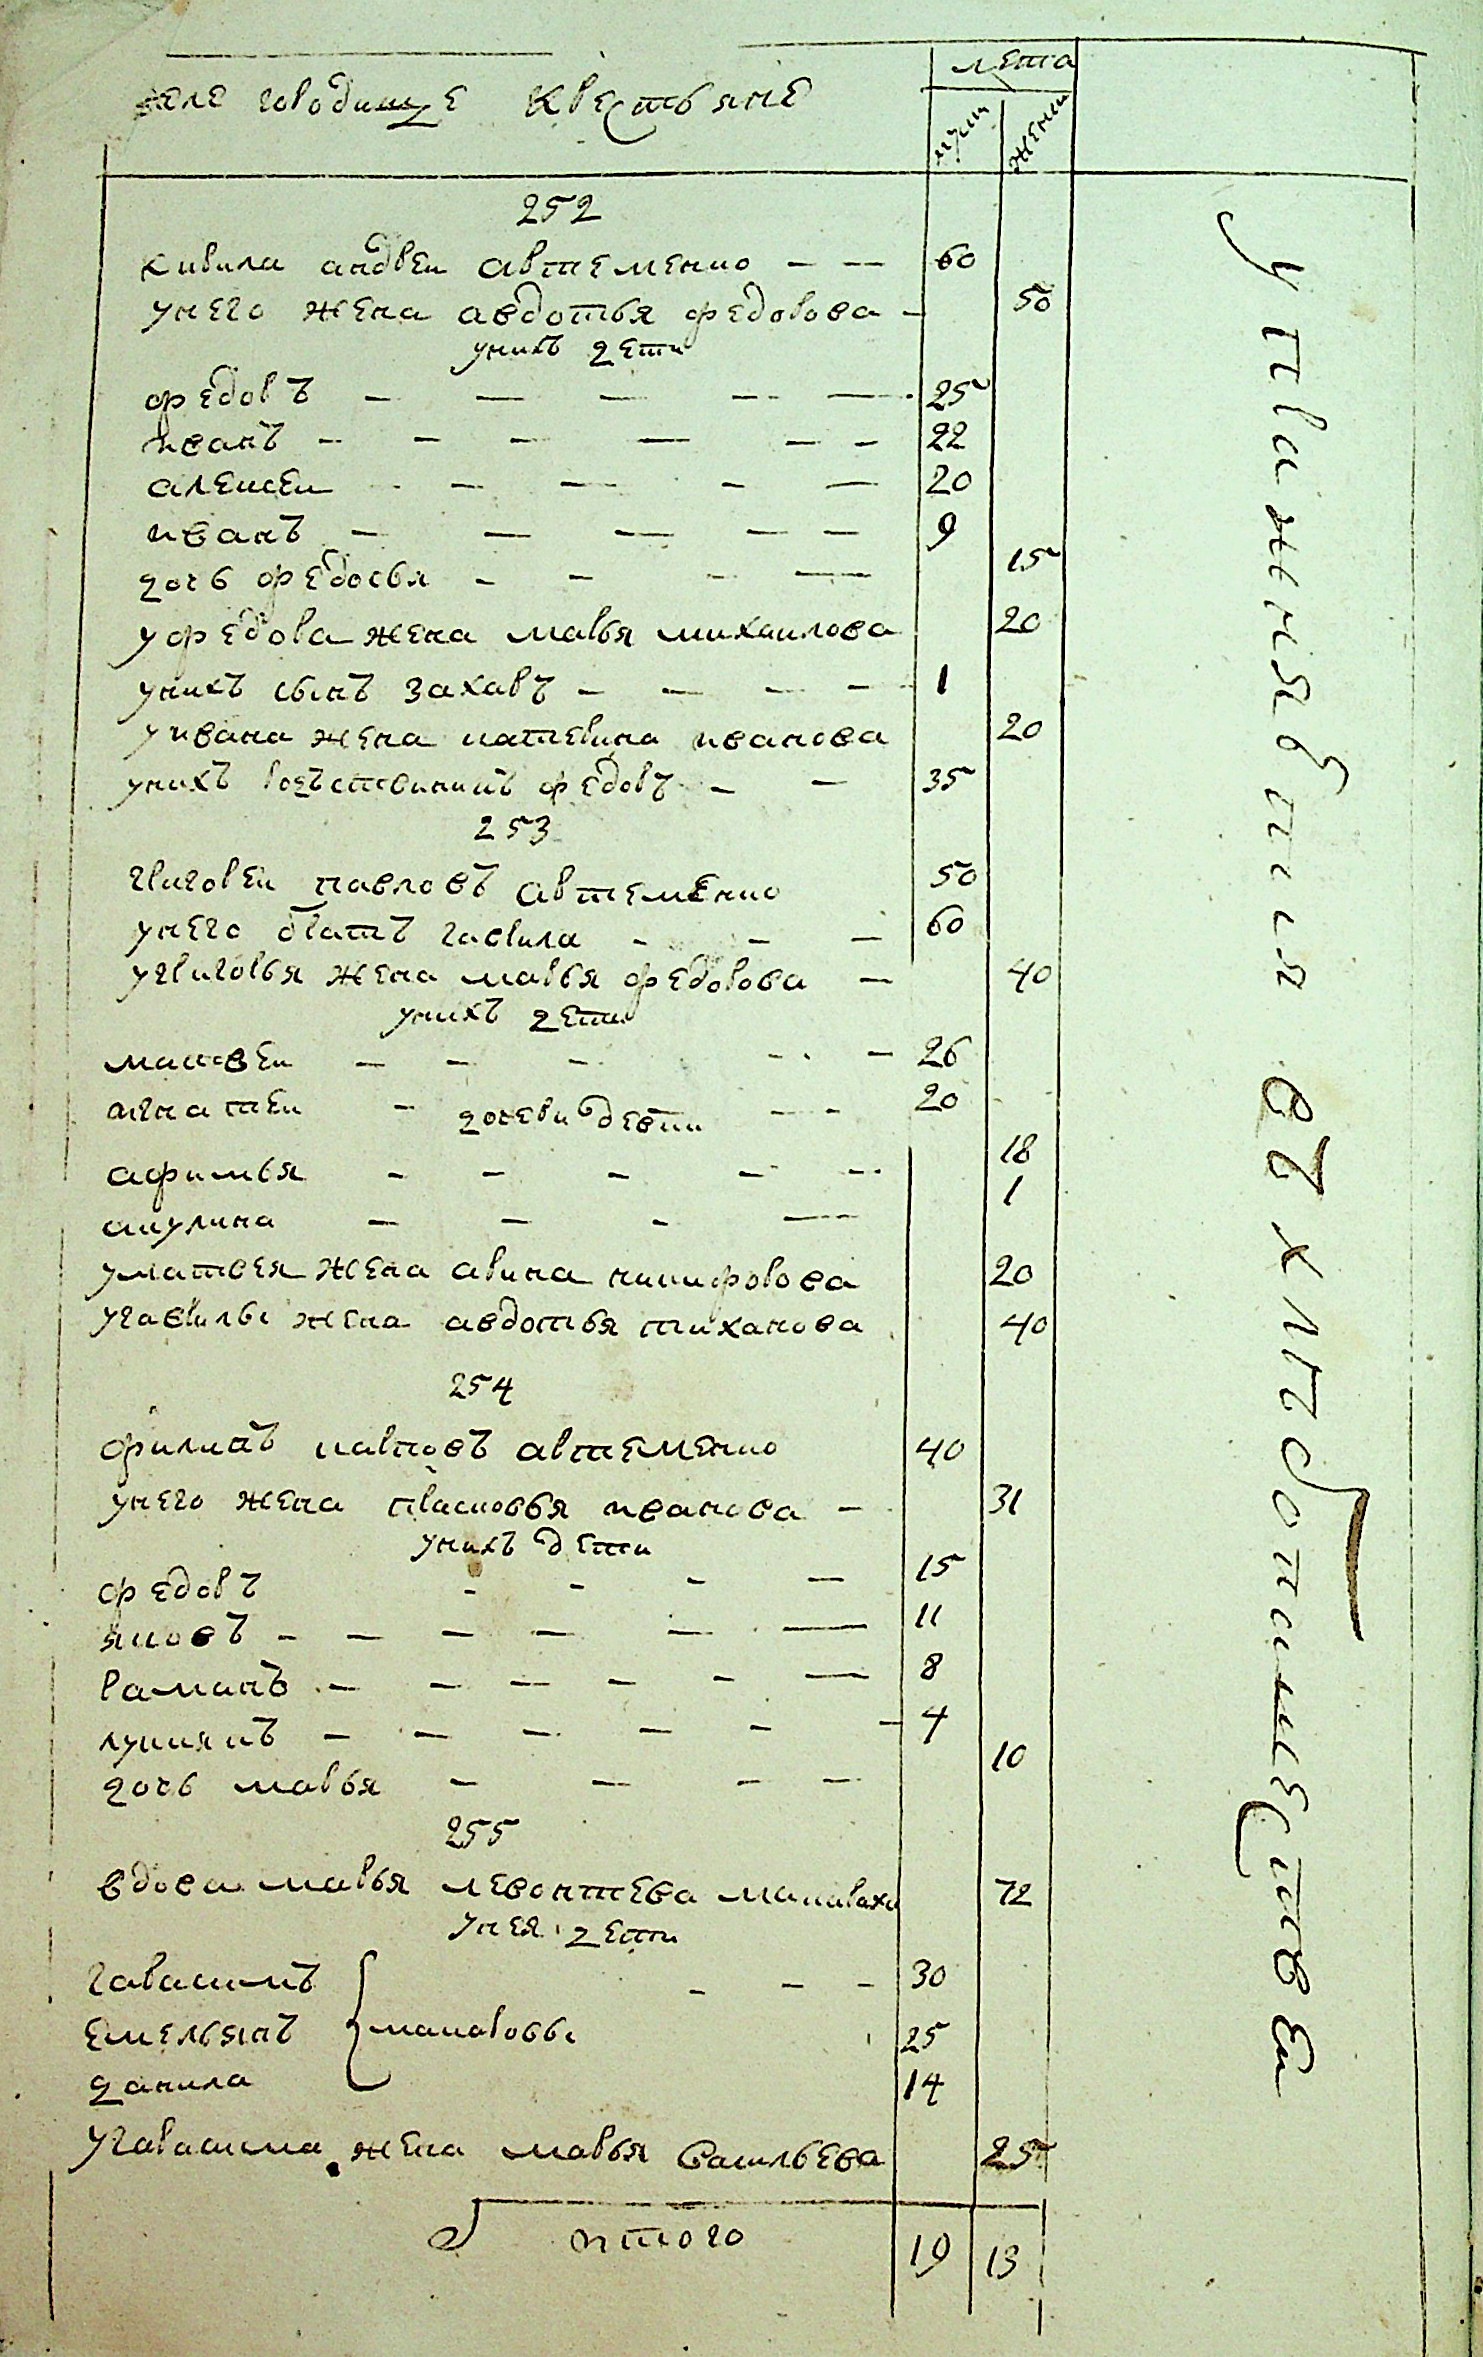 селе городище крестьяне
лета
муш
жени
252
кирила андреи артеменко — — 60
унего жена авдотья федорова — 50
унихъ дети
федоръ — — — — — 25
иванъ — — — — — — 22
алексеи — — — — 20
иванъ — — — — — 9
дочь федосья — — — — 15
уфедора жена марья михаилова 20
унихъ сынъ захаръ — — — — 1
уивана жена катерина иванова 20
унихъ родственникъ федоръ — — 35
253
григореи павловъ артеменко 50
унего братъ гаврила — — — 60
угригорья жена марья федорова — 40
унихъ дети
матвеи — — — — — 26
игнатеи — — — 20
дочери девки
афимья — — — — — 18
акулина — — — — 1
уматвея жена арина никифорова 20
угаврилы жена авдотья тиханова 40
254
филипъ карповъ артеменко 40
унего жена прасковья иванова — 31
унихъ дети
федоръ — — — — 15
яковъ — — — — — — 11
раманъ — — — — — — 8
лукиянъ — — — — — — 4
дочь марья — — — — 10
255
вдова марья леонтева макариха 72
унея дети
гарасимъ — — — 30
емельянъ макаровы 25
данила 14
угарасима жена марья васильева 25
итого 19 13
упражнябтия въ хлебопашестве